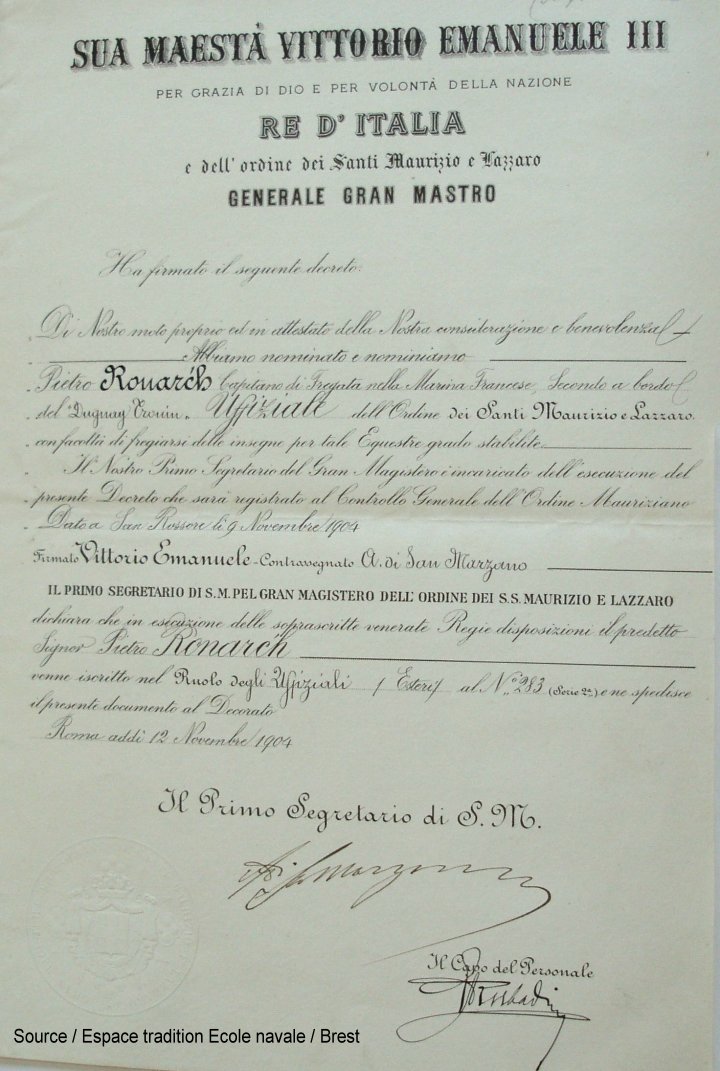 SUA MAESTÀ VITTORIO EMANUELE III
PER GRAZIA DI DIO E PER VOLONTÀ DELLA NAZIONE
RE D'ITALIA
e dell'ordine dei Santi Maurizio e Lazzaro
GENERALE GRAN MASTRO
Ha firmato il seguente decreto:
Di Nostro moto proprio ed in attestato della Nostra considerazione e benevolenza
Abbiamo nominato e nominiamo
Pietro Ronarc'h Capitano di Fregata nella Marina Francese, Secondo a bordo
del "Duguay Trouin" Uffiziale dell'Ordine dei Santi Maurizio e Lazzaro
con facoltà di fregiarsi delle insegne per tale Equestre grado stabilite
Il Nostro Primo Segretario del Gran Magistero è incaricato dell'esecuzione del
presente Decreto che sarà registrato al Controllo Generale dell'Ordine Mauriziano
Dato a San Rossore li 9 Novembre 1904
Firmato Vittorio Emanuele - Contrassegnato A. di San Marzano
IL PRIMO SEGRETARIO DI S.M. PEL GRAN MAGISTERO DELL'ORDINE DEI S.S. MAURIZIO E LAZZARO
dichiara che in esecuzione delle soprascritte venerate Regie disposizioni il predetto
Signor Pietro Ronarc'h
venne iscritto nel Ruolo degli Uffiziali (Esteri) al N.° 283 (Serie 2a) e ne spedisce
il presente documento al Decorato
Roma addì 12 Novembre 1904
Il Primo Segretario di S. M.
Il Capo del Personale
Source / Espace tradition Ecole navale / Brest